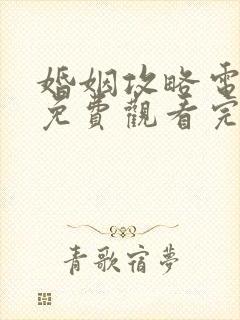 婚姻攻略電
免費觀看完
青歌宿夢